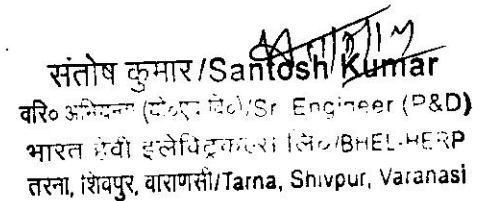 संतोष कुमार/Santosh Kumar
वरि० अभियन्ता (पी०एण्ड डि०)/Sr. Engineer (P&D)
भारत हेवी इलेक्ट्रिकल्स लि०/BHEL-HERP
तरना, शिवपुर, वाराणसी/Tarna, Shivpur, Varanasi